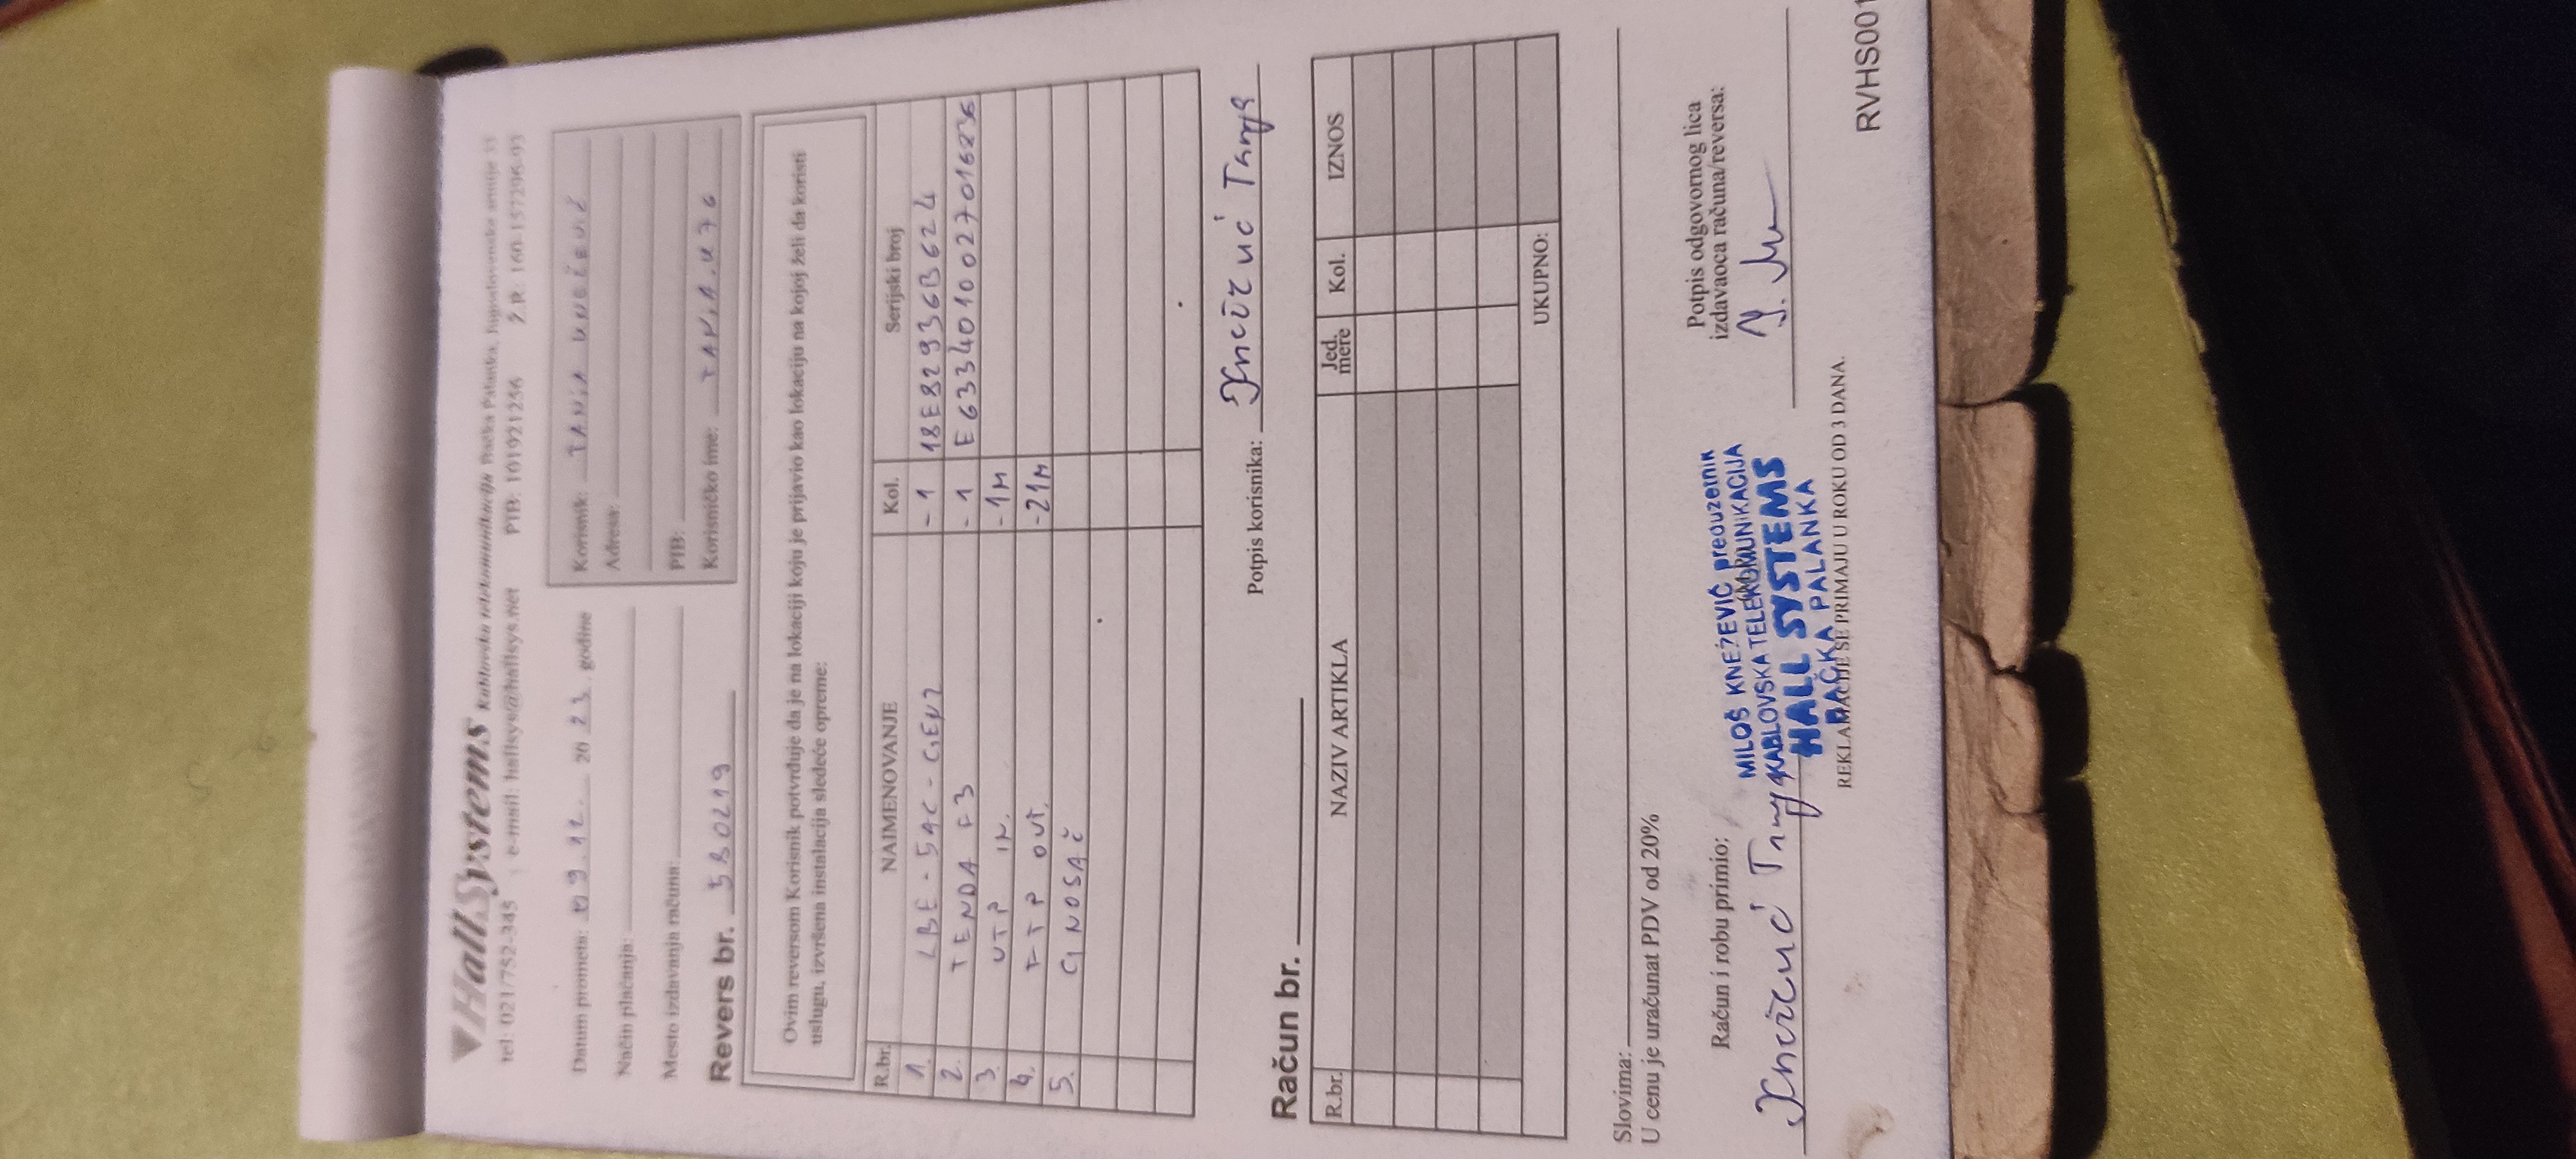 HallSystems Kablovska telekomunikacija Bačka Palanka, Jugoslovenske armije
tel: 021/752-345 ; e-mail: hallsys@hallsys.net PIB: 101921256 Ž.R: 160-157296-93
Datum prometa: 09.12. 2023. godine
Način plaćanja:
Mesto izdavanja računa:
Korisnik: TANJA
Adresa:
PIB:
Korisničko ime:
Revers br. 580219
Ovim reversom Korisnik potvrđuje da je na lokaciji koju je prijavio kao lokaciju na kojoj želi da koristi
uslugu, izvršena instalacija sledeće opreme:
R.br. NAIMENOVANJE Kol. Serijski broj
1. LBE-5AC-GEN2 -1 18E82936B624
2. TENDA F3 -1 E6334010027016236
3. UTP IN. -1M
4. FTP OUT. -21M
5. G NOSAČ
Potpis korisnika:
Račun br.
R.br. NAZIV ARTIKLA Jed. mere Kol. IZNOS
UKUPNO:
Slovima:
U cenu je uračunat PDV od 20%
Račun i robu primio:
MILOŠ KNE?EVIĆ preduzetnik
KABLOVSKA TELEKOMUNIKACIJA
HALL SYSTEMS
BAČKA PALANKA
Potpis odgovornog lica
izdavaoca računa/reversa:
REKLAMACIJE SE PRIMAJU U ROKU OD 3 DANA.
RVHS001